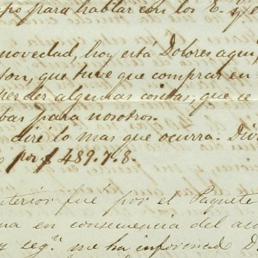 po para hablar con los E. y e
novedad, hoy esta Dolores aqui
son, que tuve que comprar en
perder algunas cositas, que se
bas para nosotros.
diré lo mas que ocurra. Div
por $ 489.7.8.
terior fué por el Paquete
na en consecuencia del aco
y seg.n me ha informad D.